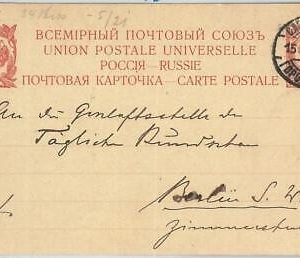 - 5/21
ВСЕМІРНЫЙ ПОЧТОВЫЙ СОЮЗЪ
UNION POSTALE UNIVERSELLE
РОССІЯ—RUSSIE
ПОЧТОВАЯ КАРТОЧКА—CARTE POSTALE
15
An die Geschäftsstelle der
Tägliche Rundschau
Berlin S. W
Zimmerstr